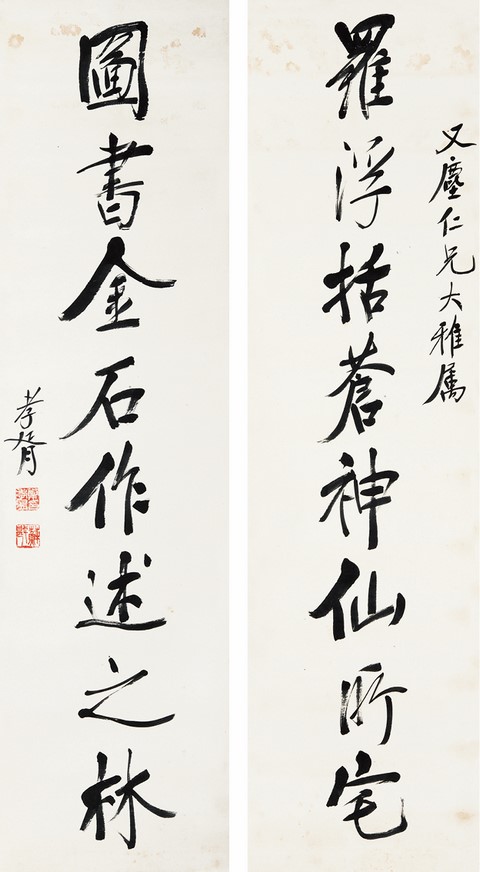 又塵仁兄大雅属
羅浮括蒼神仙所宅
圖書金石作述之林
孝胥